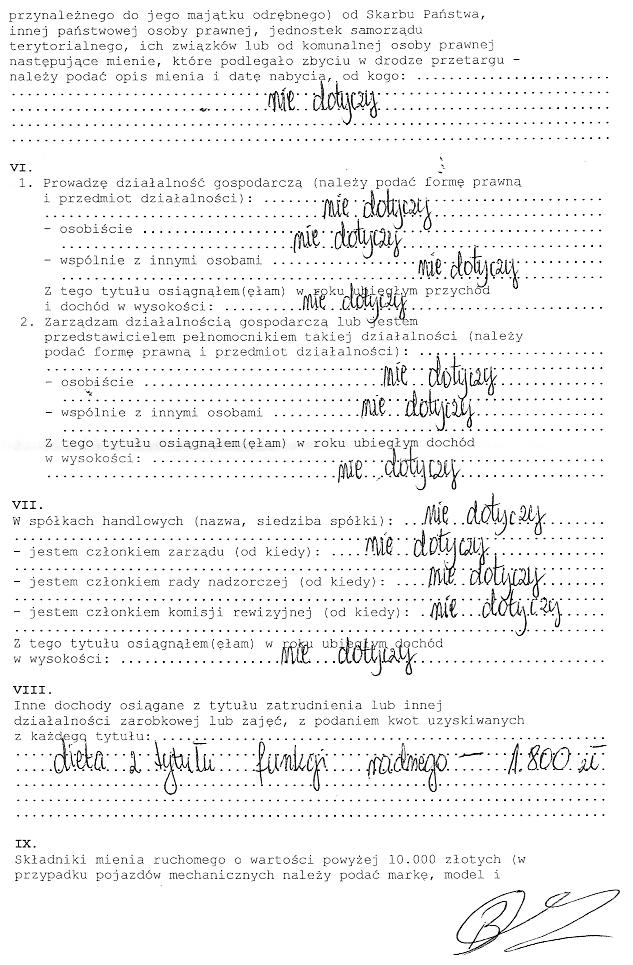 przynależnego do jego majątku odrębnego) od Skarbu Państwa,
innej państwowej osoby prawnej, jednostek samorządu
terytorialnego, ich związków lub od komunalnej osoby prawnej
następujące mienie, które podlegało zbyciu w drodze przetargu –
należy podać opis mienia i datę nabycia, od kogo:
nie dotyczy
VI.
1. Prowadzę działalność gospodarczą (należy podać formę prawną
i przedmiot działalności):
nie dotyczy
- osobiście
nie dotyczy
- wspólnie z innymi osobami
nie dotyczy
Z tego tytułu osiągnąłem(ęłam) w roku ubiegłym przychód
i dochód w wysokości: nie dotyczy
2. Zarządzam działalnością gospodarczą lub jestem
przedstawicielem pełnomocnikiem takiej działalności (należy
podać formę prawną i przedmiot działalności):
nie dotyczy
- osobiście
nie dotyczy
- wspólnie z innymi osobami
Z tego tytułu osiągnąłem(ęłam) w roku ubiegłym dochód
w wysokości: nie dotyczy
VII.
W spółkach handlowych (nazwa, siedziba spółki): nie dotyczy
- jestem członkiem zarządu (od kiedy): nie dotyczy
- jestem członkiem rady nadzorczej (od kiedy): nie dotyczy
- jestem członkiem komisji rewizyjnej (od kiedy): nie dotyczy
Z tego tytułu osiągnąłem(ęłam) w roku ubiegłym dochód
w wysokości: nie dotyczy
VIII.
Inne dochody osiągane z tytułu zatrudnienia lub innej
działalności zarobkowej lub zajęć, z podaniem kwot uzyskiwanych
z każdego tytułu:
dieta z tytułu funkcji radnego – 1.800 zł
IX.
Składniki mienia ruchomego o wartości powyżej 10.000 złotych (w
przypadku pojazdów mechanicznych należy podać markę, model i